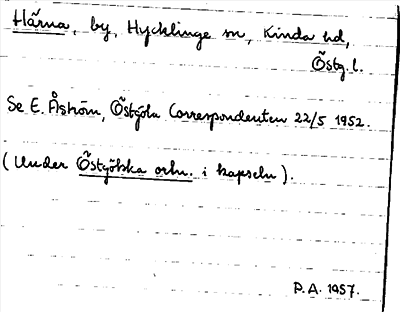 Härna, by, Hycklinge sn, Kinda hd,
Östg. l.
Se E. Åström, Östgöta Correspondenten 22/5 1952.
(Under Östgötska ortn. i kapseln).
P.A. 1957.